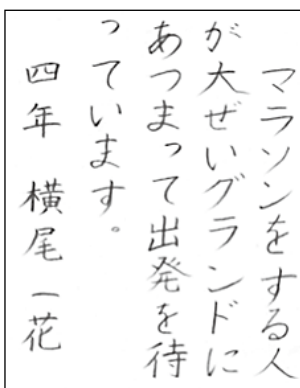 マラソンをする人
が大ぜいグランドに
あつまって出発を待
っています。
四年 横尾一花